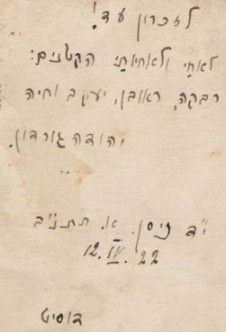 לזכרון עד!
לאחי ולאחיותי הקטנים:
רבקה, ראובן, יעקב וחיה
יהודה גורדון.
י"ד ניסן. א. תתנ"ב
12. IV. 22